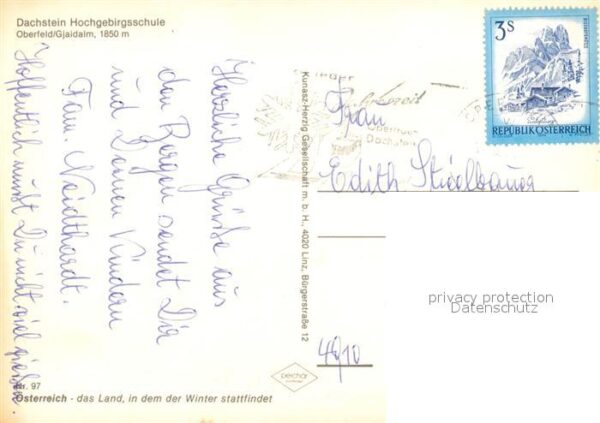 Dachstein Hochgebirgsschule
Oberfeld/Gjaidalm, 1850 m
Herzliche Grüße aus
den Bergen sendet Dir
und Deinen Kindern
Fam. Neidthardt.
Hoffentlich mußt Du nicht viel gießen.
Nr. 97
Österreich - das Land, in dem der Winter stattfindet
Kunasz-Herzig Gesellschaft m. b. H., 4020 Linz, Bürgerstraße 12
3S
REPUBLIK ÖSTERREICH
Obertraun
Dachstein
Frau
Edith
4810
privacy protection
Datenschutz